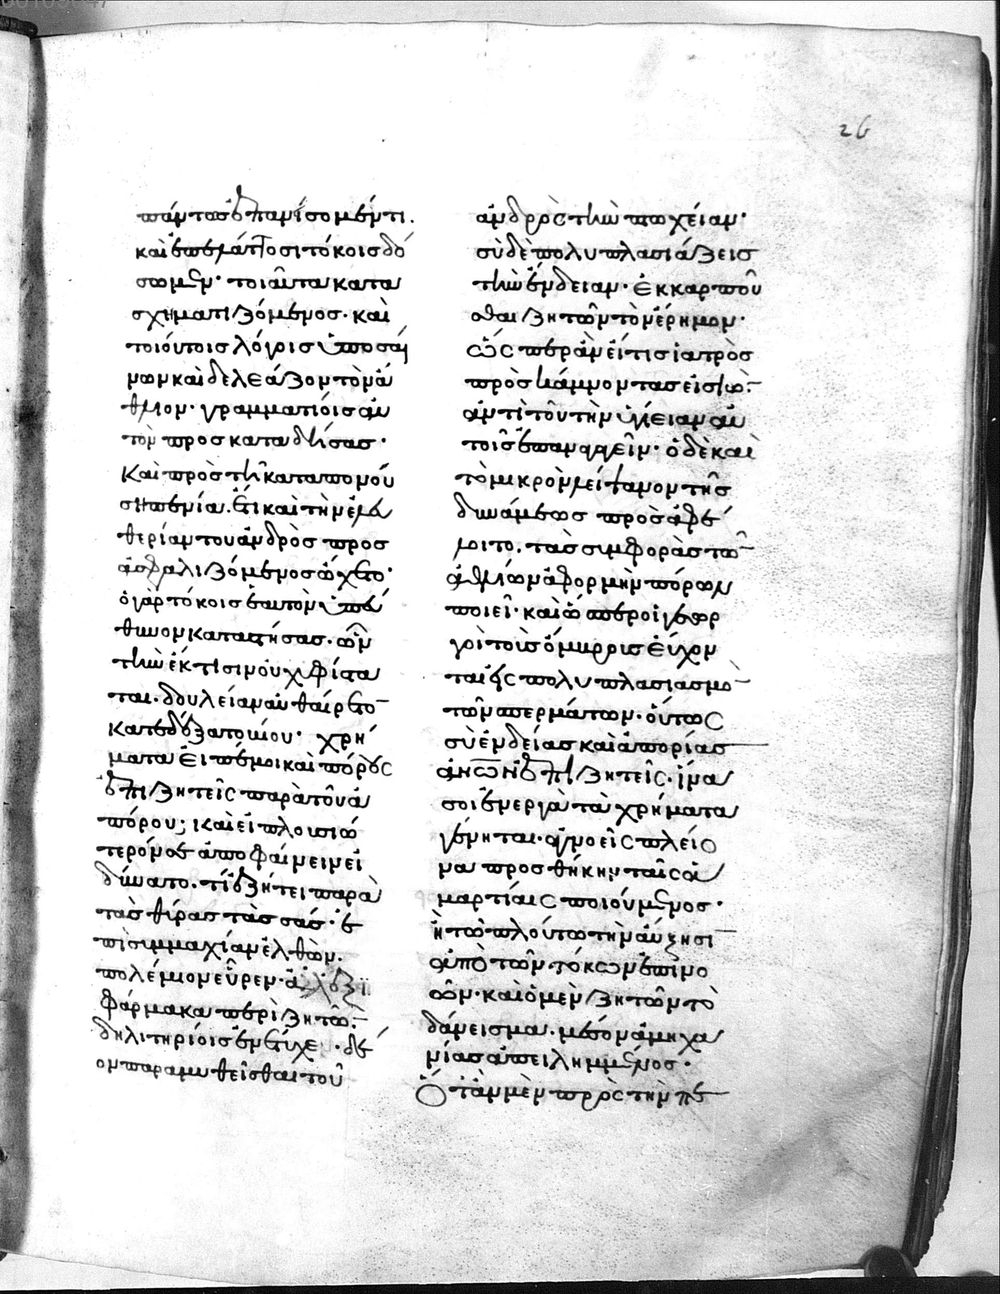 πάντασ ἐπανισομέντι.
καὶ ἐπὶ ῥητοῖσι τόκοισ δώ
σωμεν· τοιαῦτα κατα
σχηματιζόμενοσ· καὶ
τοιούτοισ λόγοισ ὑποσαί
νων καὶ δελεάζων τὸν ἄ
θλιον· γραμματίοισ αὐ
τὸν προσκαταδήσασ·
Καὶ πρὸσ τῆ καταπονού
ση πενία. ἔτι καὶ τὴν ἐλευ
θερίαν του ἀνδρὸσ προσ
ασφαλιζόμενοσ ὤχετο·
ὁ γὰρ τόκοισ ἑαυτὸν ὑπεύ
θυνον καταστήσασ· ὧν
τὴν ἔκτισιν οὐχ ὑφίστα
ται. δουλείαν αὐθαίρετον
κατεδέξατο βίου· χρή
ματα εἰπέ μοι καὶ πόρους
ἐπιζητεῖς παρὰ τοῦ ἀ
πόρου; καὶ εἰ πλουσιώ
τερόν σε ἀποφαίνειν εἰ
δύνατο. τί ἐζήτει παρὰ
τὰσ θύρασ τὰσ σάσ· ἐ
πὶ συμμαχίαν ἐλθὼν.
πολέμιον εὗρεν· ἀλεξι
φάρμακα περὶζητῶν·
δηλιτηρίοισ ἐνέτυχε· δέ
ον παραμυθεῖσθαι τοῦ
ἀνδρὸς τὴν πτωχείαν·
σὺ δὲ πολυπλασιάζεισ
τὴν ἔνδειαν· ἐκκαρποῦ
σθαι ζητῶν τὸν ἔρημον·
ὡς περ ἀν εἴ τισ ἰατρὸσ
πρὸσ κάμνοντασ εἰσιὼν·
ἀντὶ τοῦ τὴν ὑγείειαν αὐ
τοῖσ ἐπαναγαγεῖν· ὁ δὲ καὶ
τὸ μικρὸν λείψανον τῆσ
δυνάμεωσ προσαφέ
λοιτο. τὰσ συμφορὰσ τῶν
ἀθλίων ἀφορμὴν πόρων
ποιεῖ· καὶ ὥσπερ οἱ γεωρ
γοὶ τοὺσ ὄμβρουσ εὔχον
ται εἰς πολυπλασιασμὸν
τῶν σπερμάτων· οὕτως
σὺ ἐνδείασ καὶ ἀπορίασ
ἀνθρώπων ἐπιζητεῖς· ἵνα
σοι ἐνεργὰ τὰ χρήματα
γένηται· ἀγνοεῖς πλείο
να προσθήκην ταῖς ἁ
μαρτίαις ποιούμενοσ·
ἢ τῶ πλούτω τὴν αὔξησιν
ἀπὸ τῶν τόκων ἐπινο
ῶν· καὶ ὁ μὲν ζητῶν τὸ
δάνεισμα. μέσον ἀμηχα
νίασ ἀπειλημμένοσ·
Ὁτὰν μὲν πρὸς τὴν πε